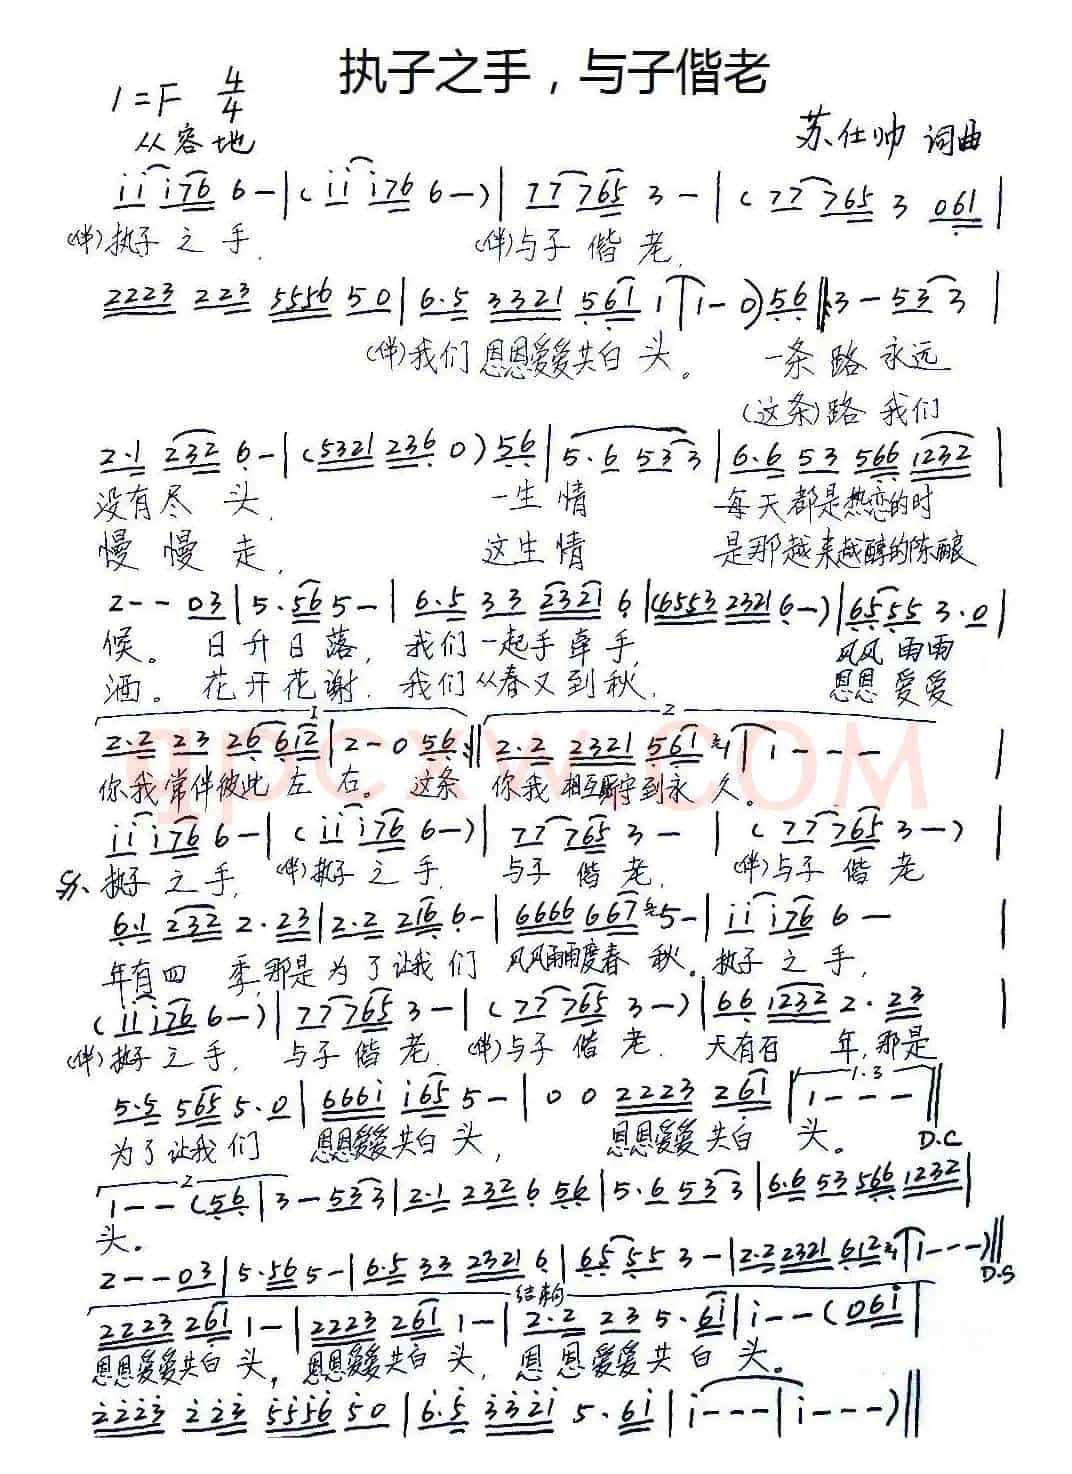 执子之手，与子偕老
1=F 4/4
从容地
苏仕帅 词曲
i i i 7 6 6 — | ( i i i 7 6 6 — ) | 7 7 7 6 5 3 — | ( 7 7 7 6 5 3 0 6 1 |
(伴)执子之手， (伴)与子偕老，
2 2 2 3 2 2 3 5 5 5 6 5 0 | 6 . 5 3 3 2 1 5 6 1 1 | 1 — 0 ) 5 6 ‖: 3 — 5 3 3 |
(伴)我们恩恩爱爱共白头。 一条路永远
(这条)路我们
2 . 1 2 3 2 6 — | ( 5 3 2 1 2 3 6 0 ) 5 6 | 5 . 6 5 3 3 | 6 . 6 5 3 5 6 6 1 2 3 2 |
没有尽头， 一生情 每天都是热恋的时
慢慢走， 这生情 是那越来越醇的陈酿
2 — — 0 3 | 5 . 5 6 5 — | 6 . 5 3 3 2 3 2 1 6 | ( 6 5 5 3 2 3 2 1 6 — ) | 6 5 5 5 3 . 0 |
候。 日升日落， 我们一起手牵手， 风风雨雨
洒。 花开花谢， 我们从春又到秋， 恩恩爱爱
1 2
2 . 2 2 3 2 6 6 1 2 | 2 — 0 5 6 :‖ 2 . 2 2 3 2 1 5 6 1 | 1 — — —
你我常伴彼此左右。 这条 你我相互厮守到永久。
qpcxw.com
i i i 7 6 6 — | ( i i i 7 6 6 — ) | 7 7 7 6 5 3 — | ( 7 7 7 6 5 3 — ) |
执子之手， (伴)执子之手， 与子偕老， (伴)与子偕老
6 . 1 2 3 2 2 . 2 3 | 2 . 2 2 1 6 6 — | 6 6 6 6 6 6 7 5 — | i i i 7 6 6 — |
年有四季，那是为了让我们 风风雨雨度春秋。 执子之手，
( i i i 7 6 6 — ) | 7 7 7 6 5 3 — | ( 7 7 7 6 5 3 — ) | 6 6 1 2 3 2 2 . 2 3 |
(伴)执子之手， 与子偕老， (伴)与子偕老， 天有百年，那是
5 . 5 5 6 5 5 . 0 | 6 6 6 i i 6 5 5 — | 0 0 2 2 2 3 2 6 1 | 1.3 1 — — — ‖
为了让我们 恩恩爱爱共白头， 恩恩爱爱共白头。 D.C
2
1 — — ( 5 6 | 3 — 5 3 3 | 2 . 1 2 3 2 6 5 6 | 5 . 6 5 3 3 | 6 . 6 5 3 5 6 6 1 2 3 2 |
头。
2 — — 0 3 | 5 . 5 6 5 — | 6 . 5 3 3 2 3 2 1 6 | 6 5 5 5 3 — | 2 . 2 2 3 2 1 6 1 2 | 1 — — — ) ‖
D.S
结束句
2 2 2 3 2 6 1 1 — | 2 2 2 3 2 6 1 1 — | 2 . 2 2 3 5 . 6 i | i — — ( 0 6 i |
恩恩爱爱共白头， 恩恩爱爱共白头， 恩恩爱爱共白头。
2 2 2 3 2 2 3 5 5 5 6 5 0 | 6 . 5 3 3 2 i 5 . 6 i | i — — — | i — — — ) ‖